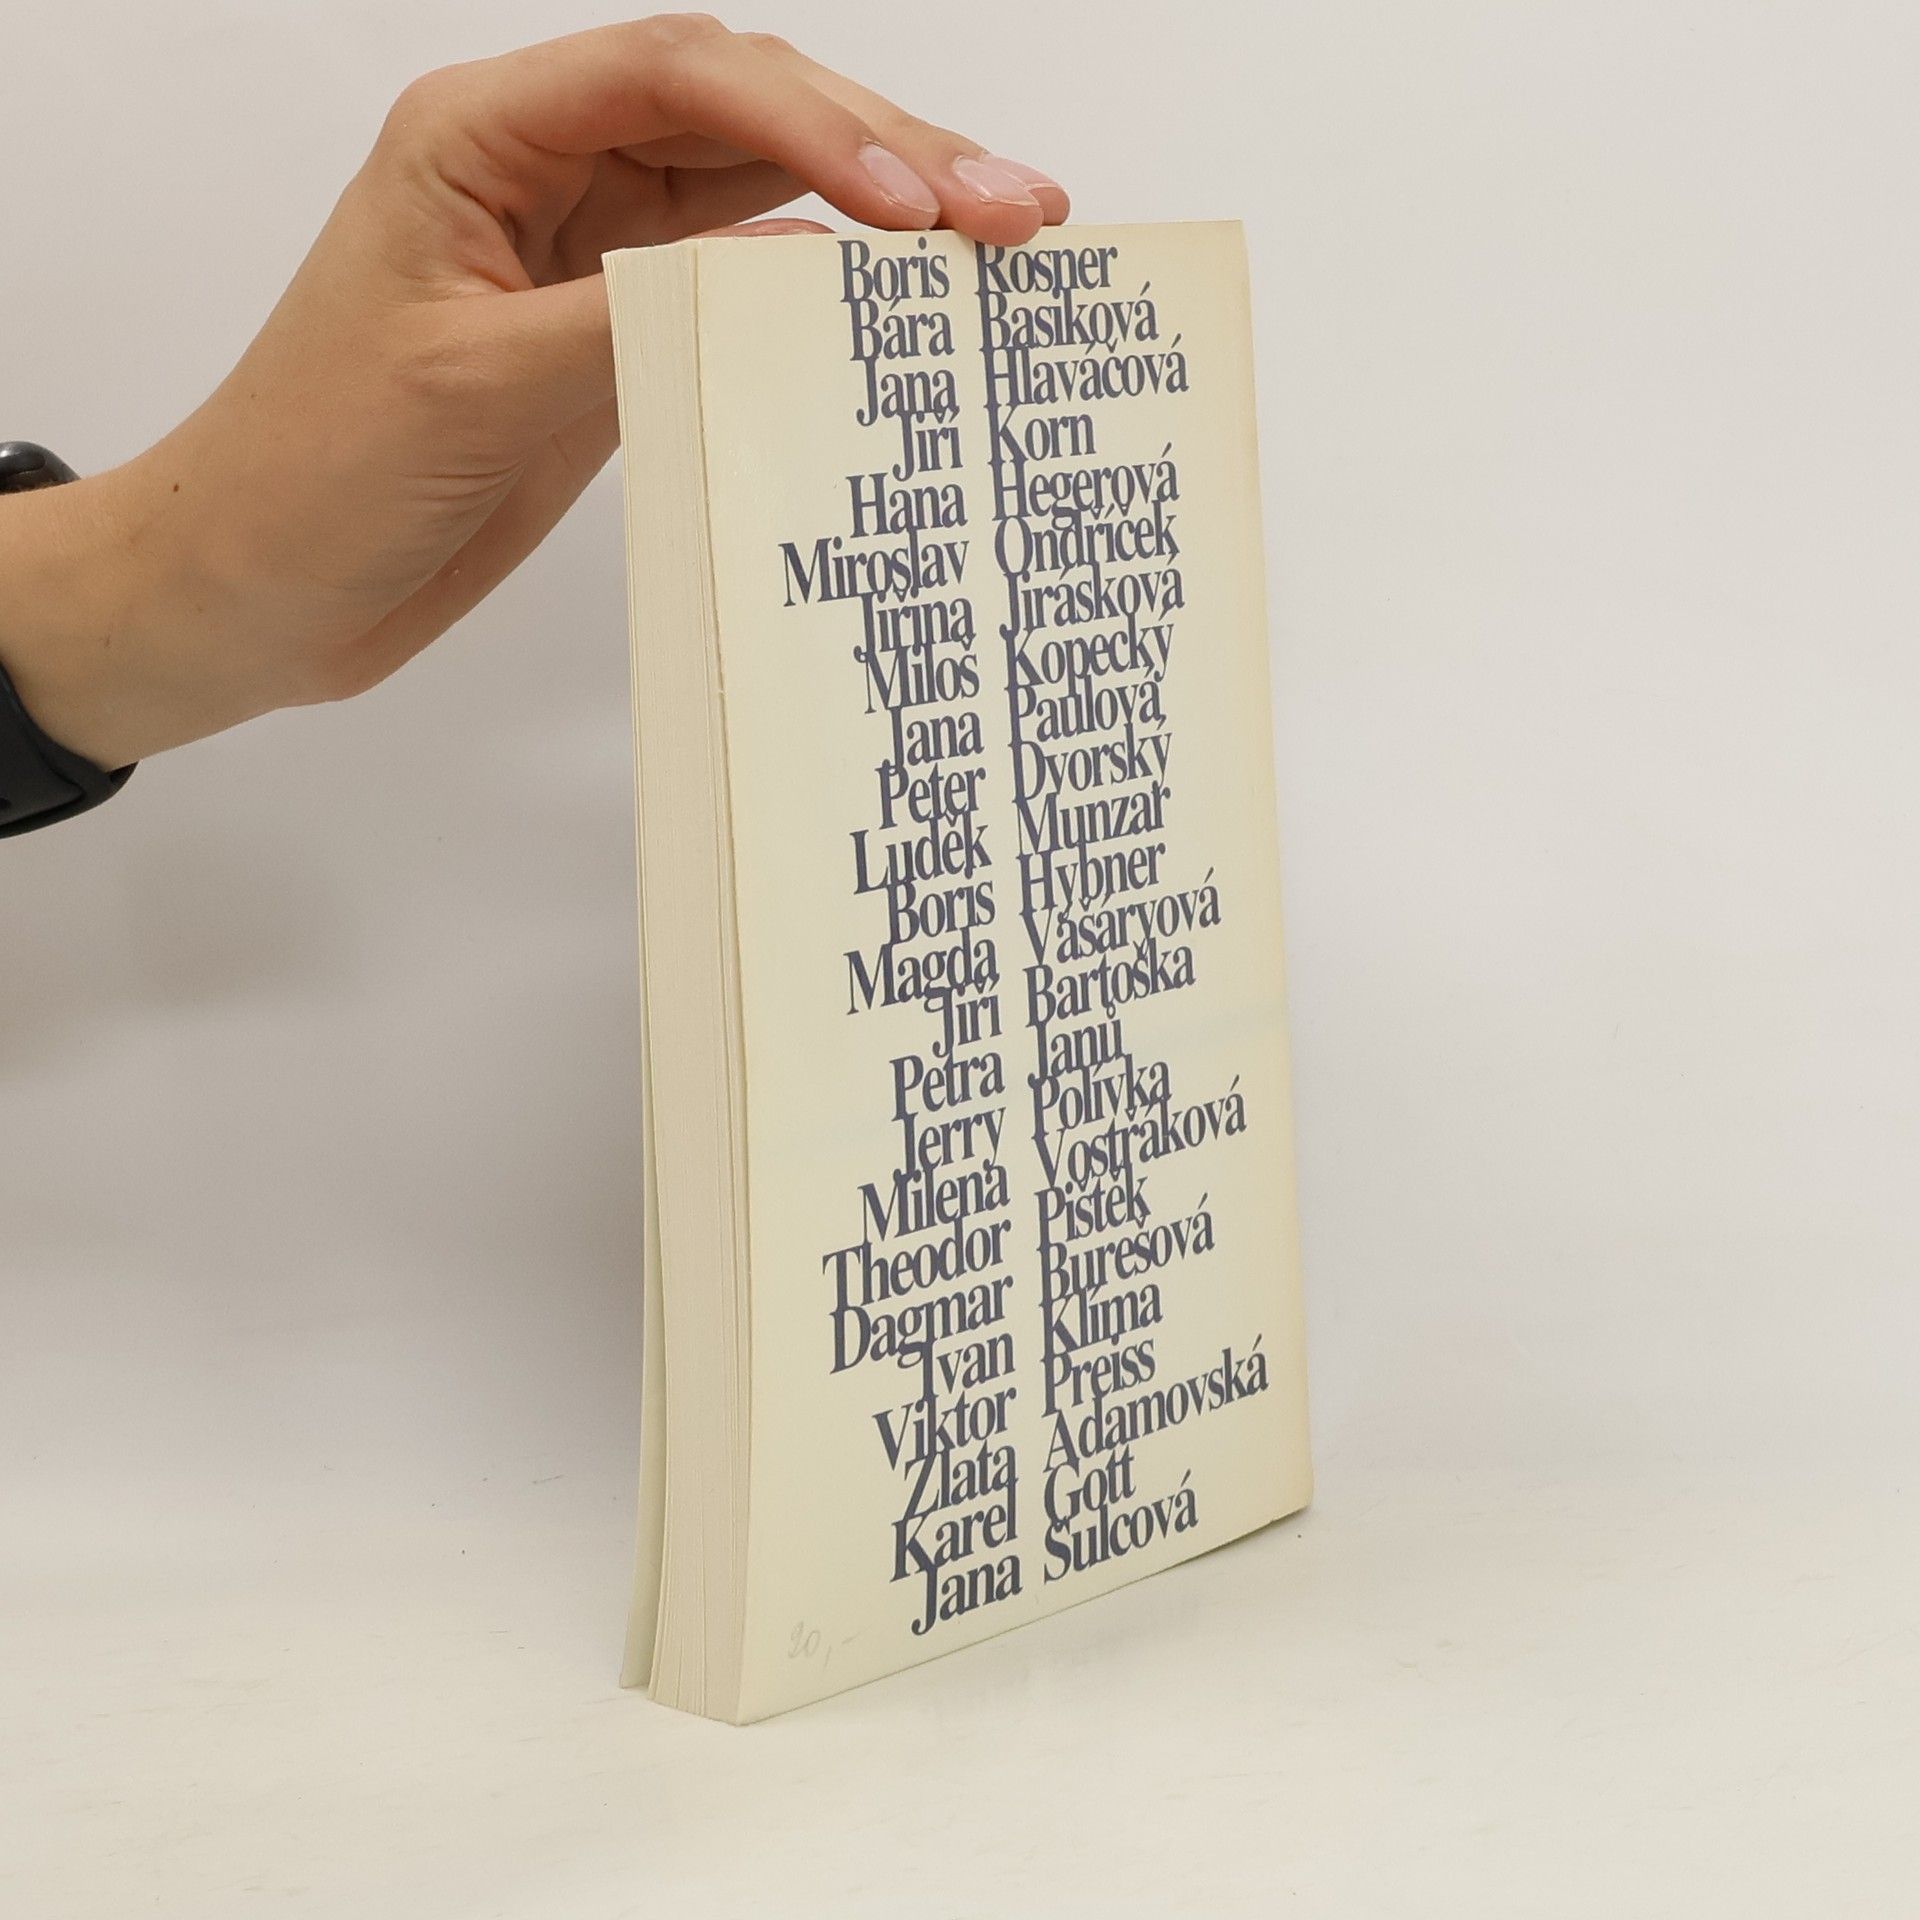 Boris Rosner
Bára Basiková
Jana Hlaváčová
Jiří Korn
Hana Hegerová
Miroslav Ondříček
Jiřina Jirásková
Miloš Kopecký
Jana Paulová
Peter Dvorský
Luděk Munzar
Boris Hybner
Magda Vášáryová
Jiří Bartoška
Petra Janů
Jerry Polívka
Milena Vostřáková
Theodor Pištěk
Dagmar Burešová
Ivan Klíma
Viktor Preiss
Zlata Adamovská
Karel Gott
Jana Šulcová
20,-